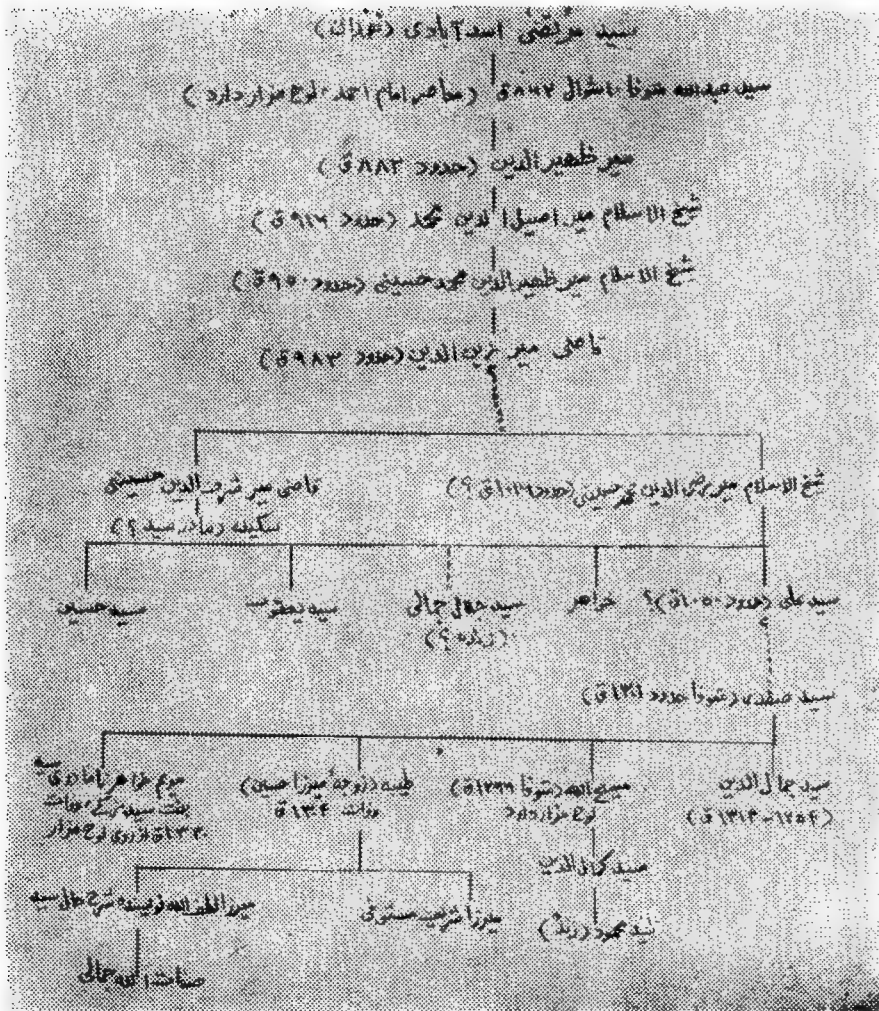 سید مرتضی اسدآبادی
سید عبدالله متوفا ۸۶۲ق (معاصر امام احمد - لوح مزار دارد)
میر ظهیرالدین (حدود ۸۸۳ق)
شیخ الاسلام میر اصیل الدین محمد (حدود ۹۱۶ق)
شیخ الاسلام میر ظهیرالدین محمد حسینی (حدود ۹۵۰ق)
قاضی میر زین الدین (حدود ۹۸۳ق)
شیخ الاسلام میر رضی الدین محمد حسینی (حدود ۱۰۳۶ق ؟)
قاضی میر شرف الدین حسینی
سکینه (مادر سید ؟)
سید علی (حدود ۱۰۵۰ق)؟
خواهر
سید جمالی
(زاده ؟)
سید یعقوب
سید حسین
سید صفدر (متوفا حدود ۱۳۰۱ق)
سید جمال الدین
(۱۲۵۴-۱۳۱۴ق)
مسیح الله (متوفا ۱۲۹۹ق)
لوح مزار دارد
طیبه (زوجه میرزا حسین)
وفات ۱۳۰۴ق
مریم خواهر سید
بنت سید وفات
۱۳۳۰ق از روی لوح مزار
سید کمال الدین
سید محمود (زنده)
میرزا شریف مستوفی
میرزا لطف الله نویسنده شرح حال سید
صفات الله جمالی